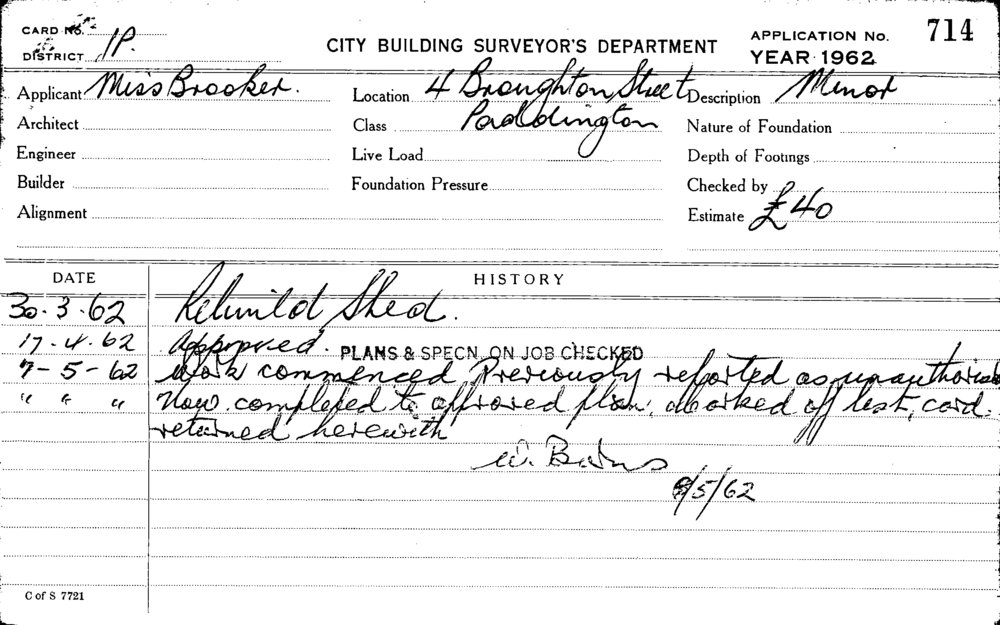 CARD No.
DISTRICT 1P.
CITY BUILDING SURVEYOR'S DEPARTMENT
APPLICATION No. 714
YEAR 1962
Applicant Miss Brooker.
Location 4 Broughton Street
Description Minor
Architect
Class Paddington
Nature of Foundation
Engineer
Live Load
Depth of Footings
Builder
Foundation Pressure
Checked by
Alignment
Estimate £40
DATE HISTORY
30.3.62 Rebuild Shed.
17.4.62 Approved. PLANS & SPECN. ON JOB CHECKED
7-5-62 Work commenced Previously reported as unauthorised
" " " Now completed to approved plan, marked off list, card
returned herewith
W.
8/5/62
C of S 7721